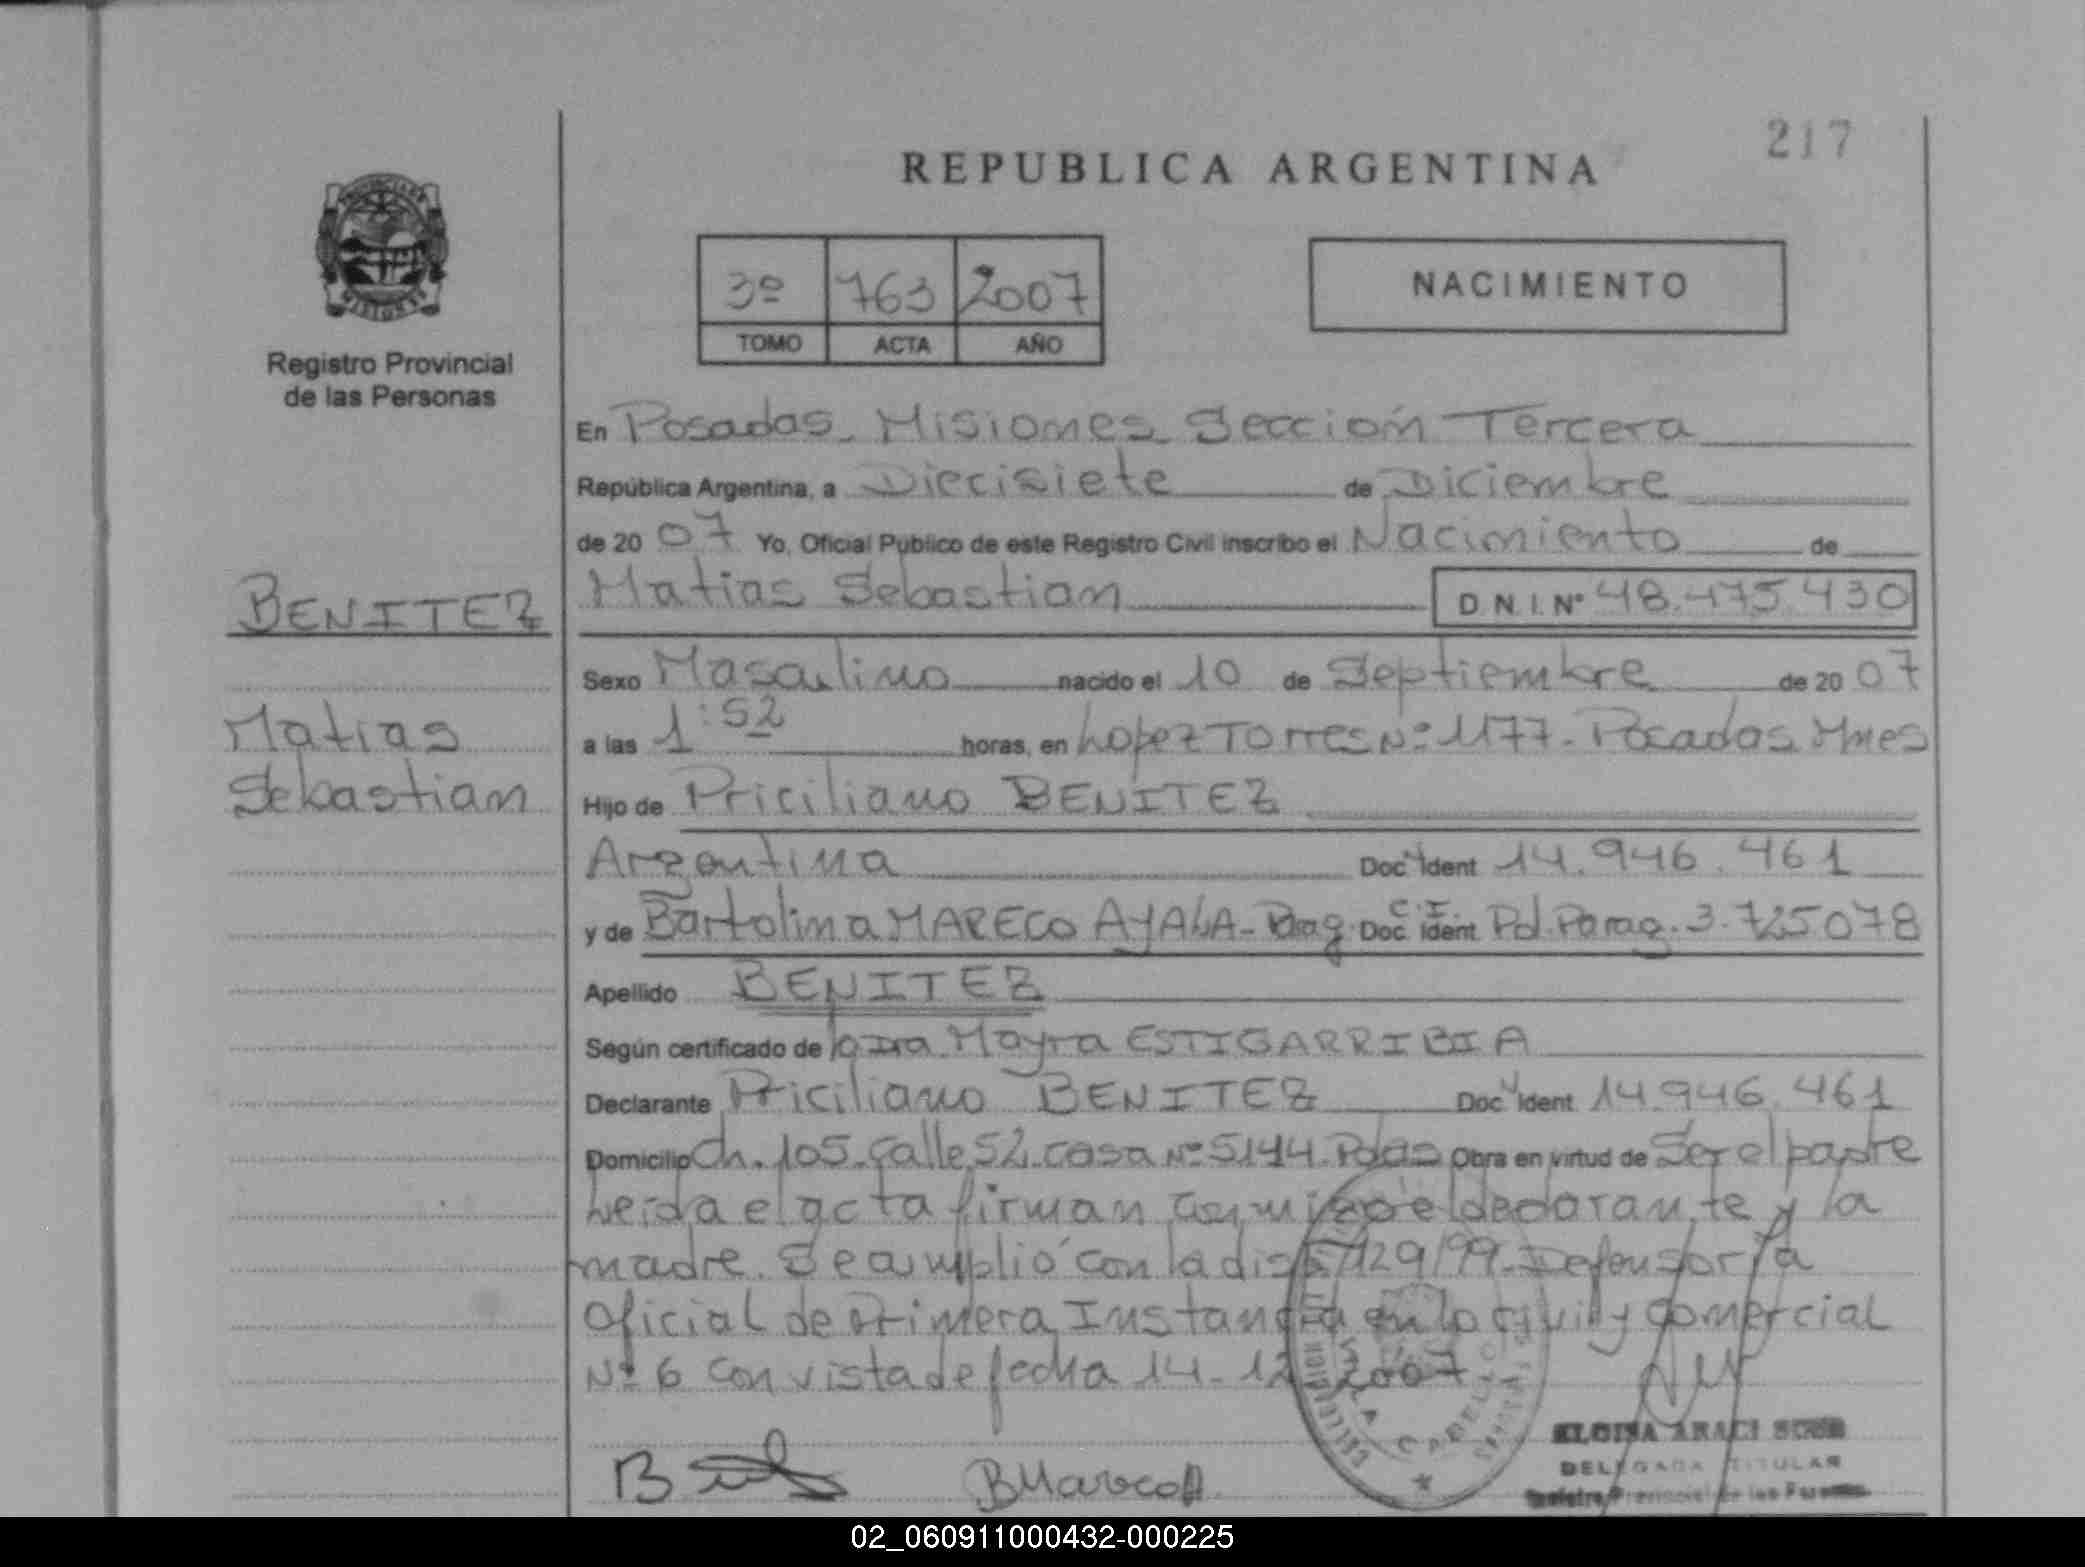 217
REPUBLICA ARGENTINA
3º 763 2007
TOMO ACTA AÑO
NACIMIENTO
Registro Provincial
de las Personas
En Posadas Misiones Sección Tercera
República Argentina, a Diecisiete de Diciembre
de 20 07 Yo, Oficial Público de este Registro Civil inscribo el Nacimiento de
BENITEZ
Matias Sebastian D.N.I. Nº 48.475.430
Sexo Masculino nacido el 10 de Septiembre de 20 07
Matias
Sebastian
a las 1:52 horas, en Lopez Torres Nº 1177 - Posadas Mnes
Hijo de Priciliano BENITEZ
Argentina Doc Ident 14.946.461
y de Bartolina MARECO AYALA - Parag Doc C.I. Ident Pol. Parag. 3.725078
Apellido BENITEZ
Según certificado de la Dra. Mayra ESTIGARRIBIA
Declarante Priciliano BENITEZ Doc Ident 14.946.461
Domicilio Ch. 105 - Calle 52 - casa Nº 5144 - Pdas Obra en virtud de Ser el padre
Leída el acta firman conmigo el declarante y la
madre. Se amplió con la disp 129/99 - Defensoría
Oficial de Primera Instancia en lo civil y Comercial
Nº 6 con vista de fecha 14-12-2007
B Mareco A
DELEGADA TITULAR
Registro Provincial de las Personas
02_060911000432-000225